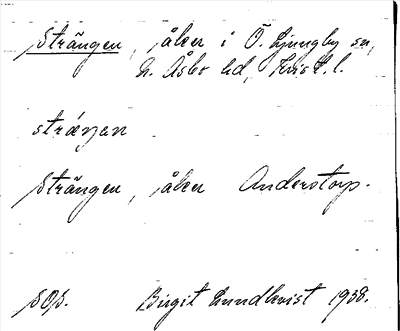 Strängen, åker i Ö. Ljungby sn,
N. Åsbo hd, Krist. l.
stráŋan
Strängen, åker Anderstorp.
SOS. Birgit Lundkvist 1938.